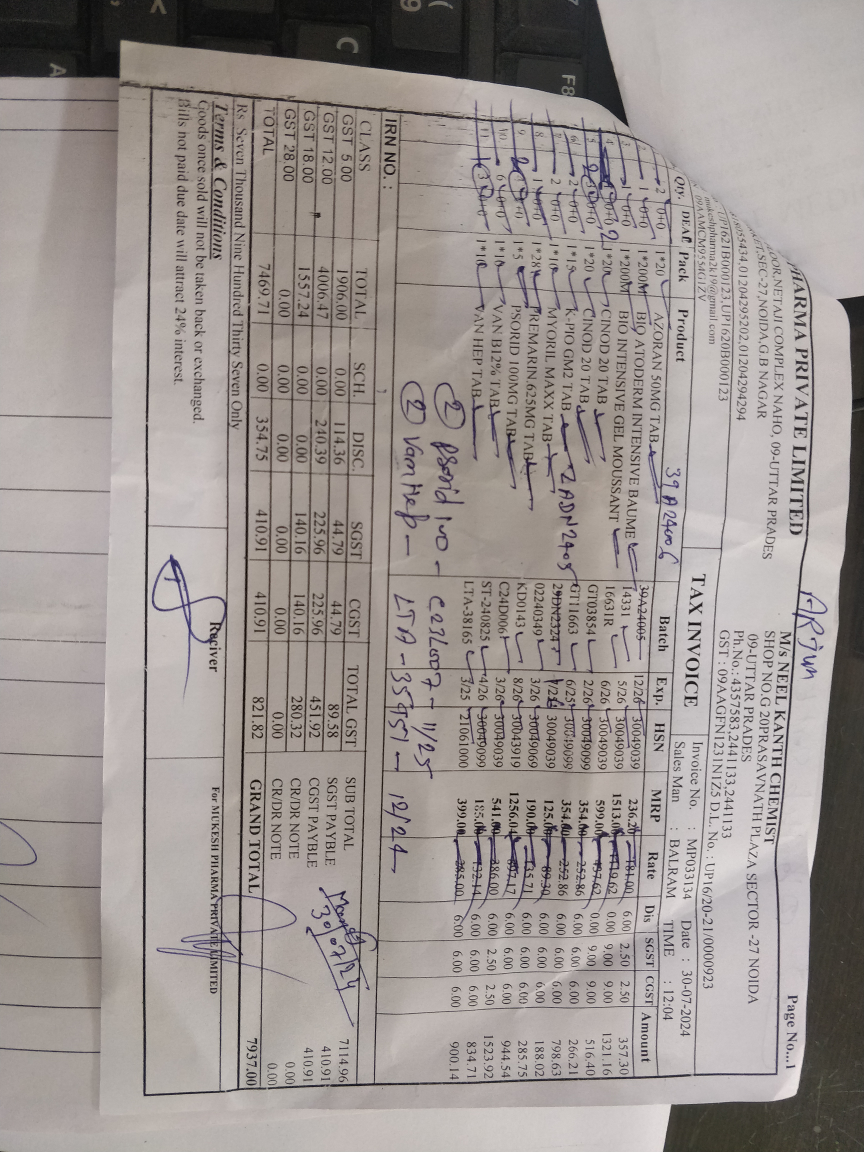 Page No...1
PHARMA PRIVATE LIMITED
FLOOR,NETAJI COMPLEX NAHO, 09-UTTAR PRADES
SEC-27,NOIDA,G.B NAGAR
01204295202,01204294294
UP1621B000123,UP1620B000123
mukeshpharma2k19@gmail.com
09AAMCM9554G1ZV
ARJUN
M/s NEEL KANTH CHEMIST
SHOP NO.G 20PRASAVNATH PLAZA SECTOR -27 NOIDA
09-UTTAR PRADES
Ph.No.: 4357583,2441133,2441133
GST : 09AAGFN1231N1Z5 D.L. No. : UP16/20-21/0000923
TAX INVOICE
Invoice No. : MP033134 Date : 30-07-2024
Sales Man : BALRAM TIME : 12:04
Qty. DEAL Pack Product Batch Exp. HSN MRP Rate Dis SGST CGST Amount
39A24006
2 0+0 1*20 AZORAN 50MG TAB 39A24005 12/26 30049039 236.20 181.00 6.00 2.50 2.50 357.30
1 0+0 1*200M BIO ATODERM INTENSIVE BAUME 14331 5/26 30049039 1513.00 1119.62 0.00 9.00 9.00 1321.16
1 0+0 1*200M BIO INTENSIVE GEL MOUSSANT 16631R 6/26 30049039 599.00 437.62 0.00 9.00 9.00 516.40
0+0 1*20 CINOD 20 TAB GT03854 2/26 30049099 354.00 252.86 6.00 6.00 6.00 266.21
0+0 1*20 CINOD 20 TAB GT11663 6/25 30049099 354.00 252.86 6.00 6.00 6.00 798.63
2 0+0 1*15 K-PIO GM2 TAB 29DN2324 30049039 125.00 89.30 6.00 6.00 6.00 188.02
2ADN2405
2 0+0 1*10 MYORIL MAXX TAB 02240349 3/26 30049069 190.00 135.71 6.00 6.00 6.00 285.75
1 0+0 1*28 PREMARIN.625MG TAB KD0143 8/26 30043919 1256.04 897.17 6.00 6.00 6.00 944.54
0+0 1*5 PSORID 100MG TAB C24D006 3/26 30049039 541.00 386.00 6.00 6.00 6.00 1523.92
6 0+0 1*10 VAN B12% TAB ST-240825 4/26 30049099 185.00 132.14 6.00 2.50 2.50 834.71
0+0 1*10 VAN HEP TAB LTA-38165 3/25 21061000 399.00 285.00 6.00 6.00 6.00 900.14
② Psorid 100 - C23L007 - 11/25
② Vam Hep - LTA - 35957 - 12/24
IRN NO. :
CLASS TOTAL SCH. DISC. SGST CGST TOTAL GST
GST 5.00 1906.00 0.00 114.36 44.79 44.79 89.58
GST 12.00 4006.47 0.00 240.39 225.96 225.96 451.92
GST 18.00 1557.24 0.00 0.00 140.16 140.16 280.32
GST 28.00 0.00 0.00 0.00 0.00 0.00 0.00
TOTAL 7469.71 0.00 354.75 410.91 410.91 821.82
SUB TOTAL 7114.96
SGST PAYBLE 410.91
CGST PAYBLE 410.91
CR/DR NOTE 0.00
CR/DR NOTE 0.00
30/07/24
Rs. Seven Thousand Nine Hundred Thirty Seven Only
GRAND TOTAL 7937.00
Terms & Conditions
Goods once sold will not be taken back or exchanged.
Bills not paid due date will attract 24% interest.
Reciver
For MUKESH PHARMA PRIVATE LIMITED